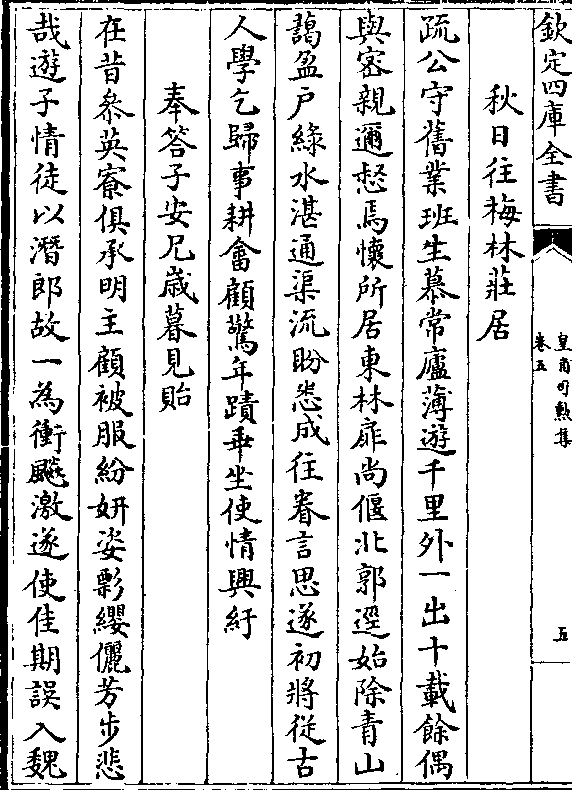 欽定四庫全書
皇甫司勲集
卷五
五
秋日往梅林莊居
疏公守舊業班生慕常廬薄遊千里外一出十載餘偶
與密親邇愁焉懷所居東林扉尚偃北郭逕始除青山
藹盈戶緑水湛通渠流盼悉成往眷言思遂初將從古
人學乞歸事耕畬顧驚年蹟乖坐使情興紓
奉答子安兄歲暮見貽
在昔叅英寮俱承明主顧被服紛妍姿彯纓儷芳步悲
哉遊子情徒以潛郎故一為衝飈激遂使佳期誤入魏